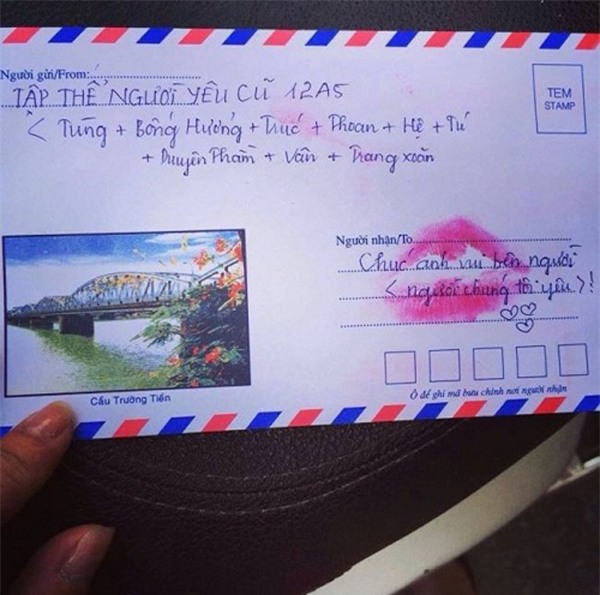 Người gửi/From:
TẬP THỂ NGƯỜI YÊU CŨ 12A5
< Tùng + Bống Hương + Trúc + Thoan + Hệ + Tú
+ Duyên Phạm + Vân + Trang xoăn
TEM
STAMP
Người nhận/To
Chúc anh vui bên người
< người chúng tôi yêu >!
Cầu Trường Tiền
Ô để ghi mã bưu chính nơi người nhận